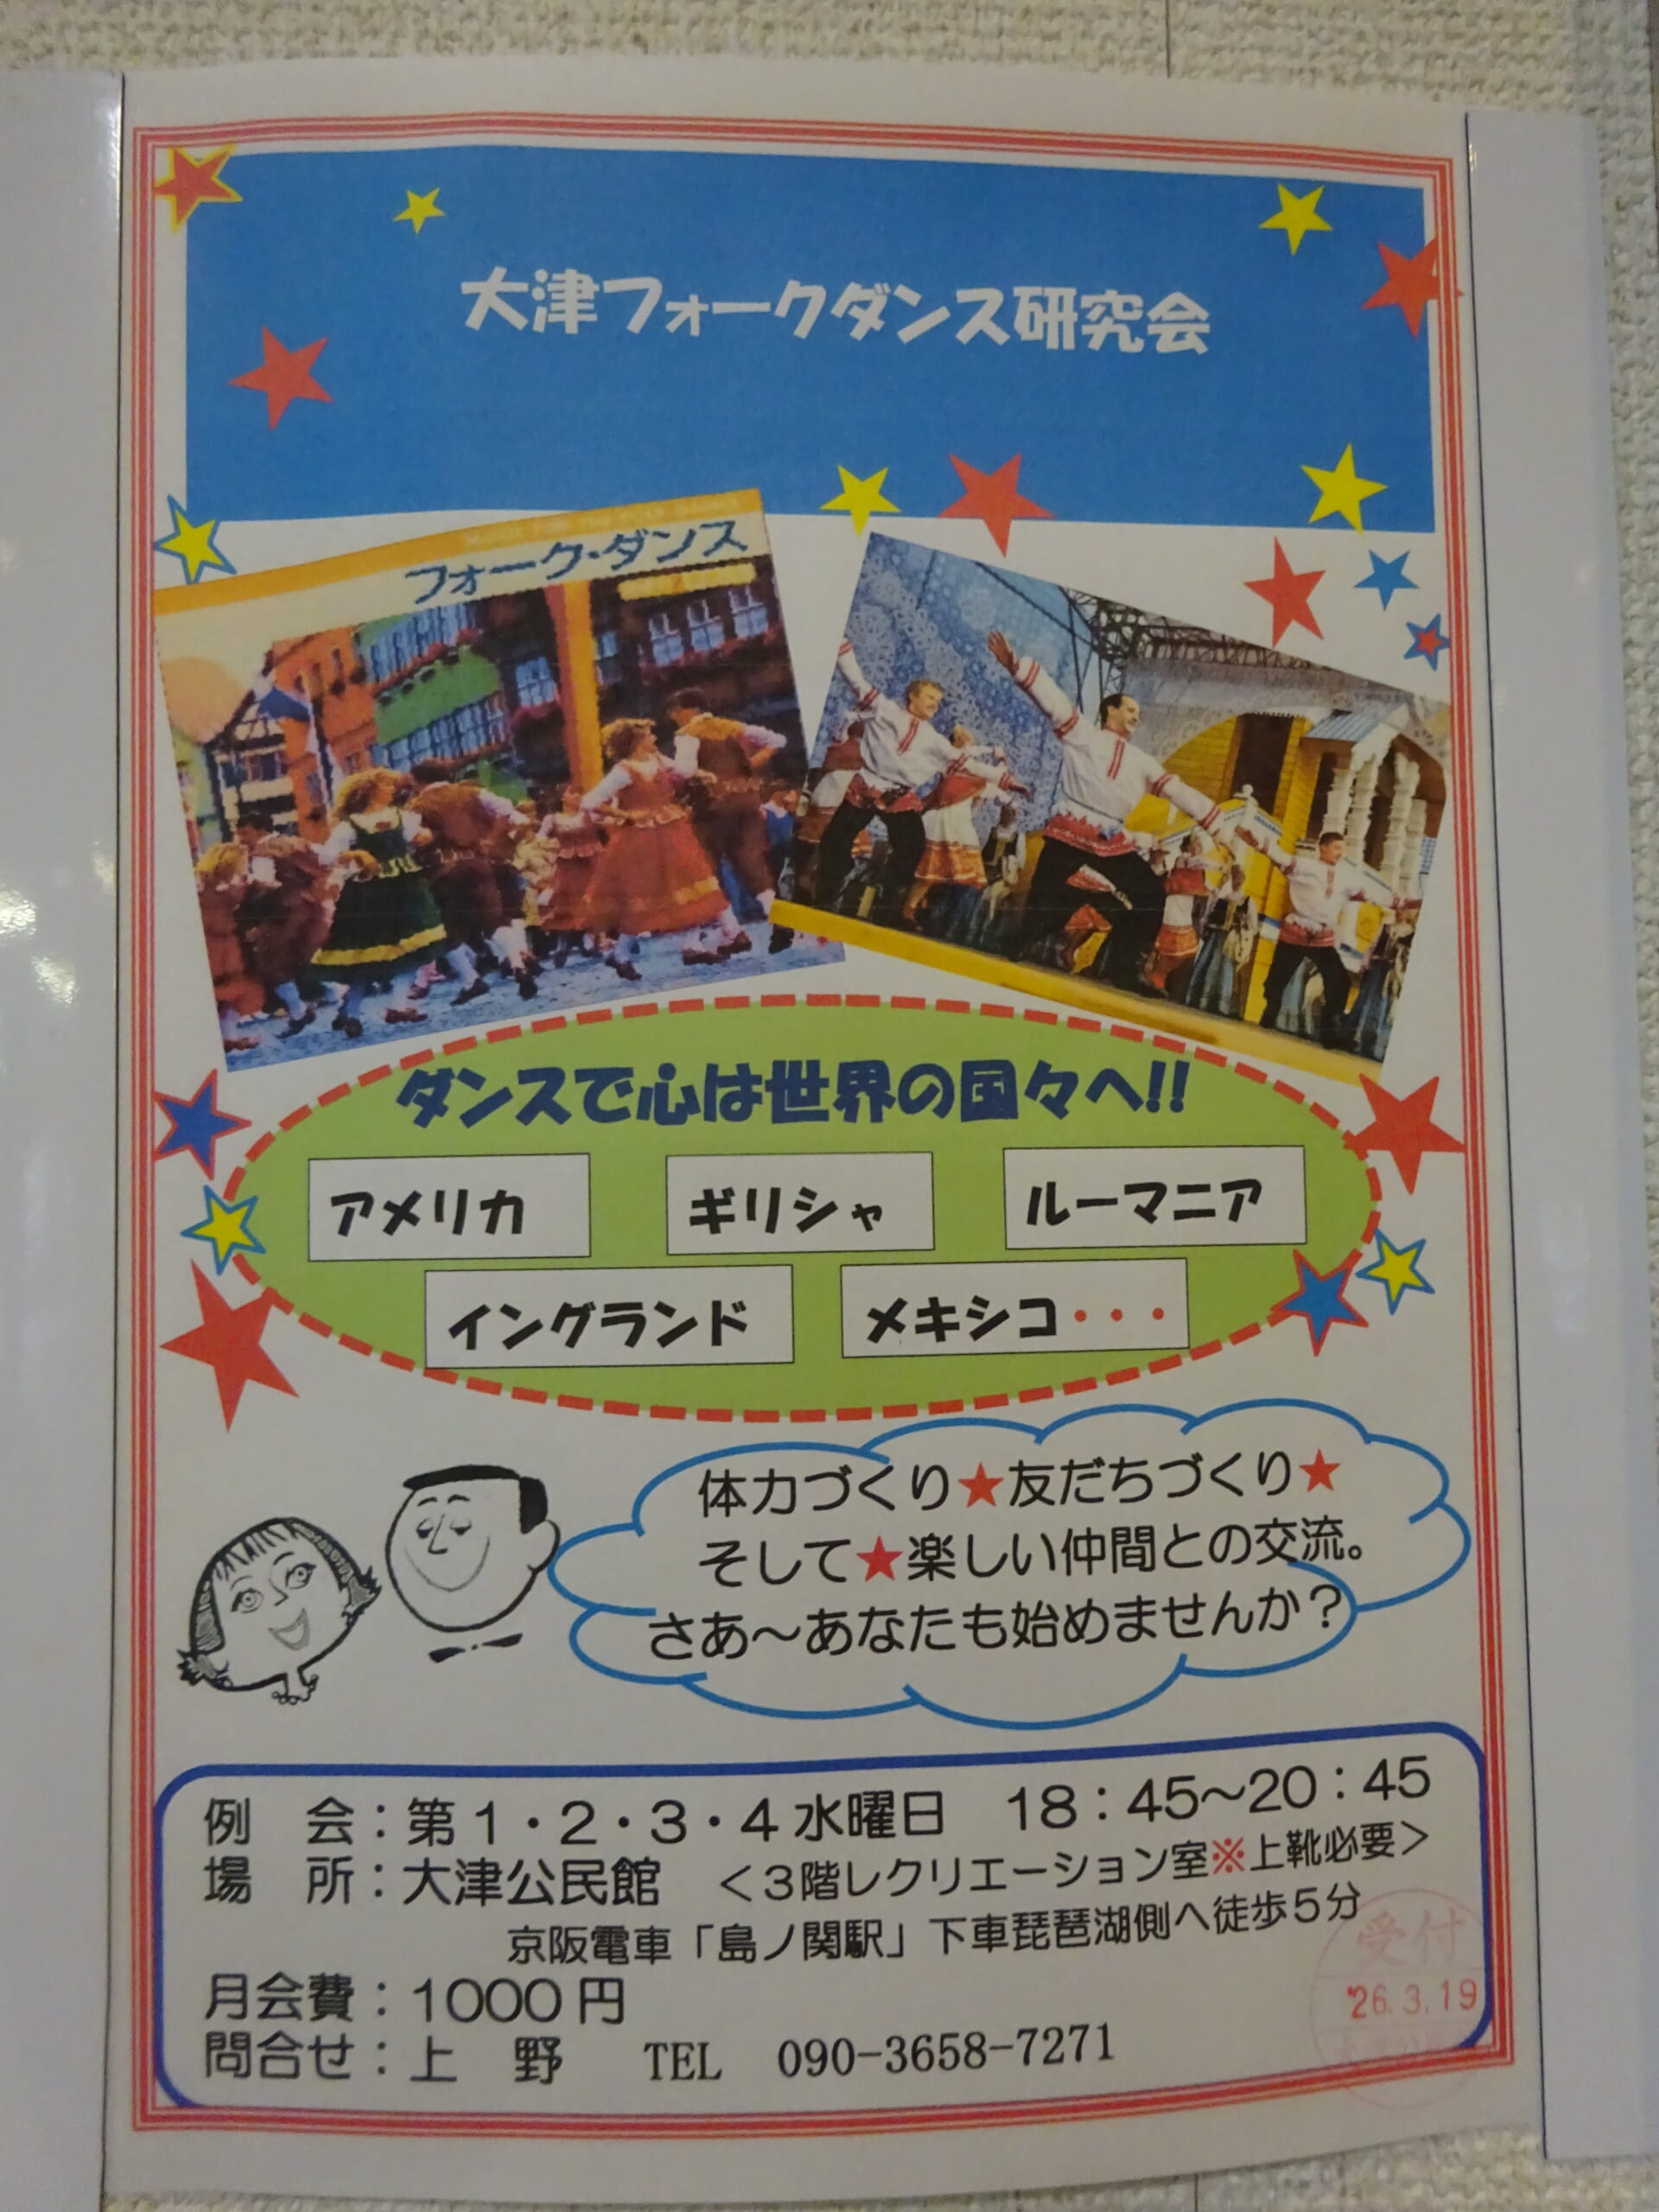 大津フォークダンス研究会
フォーク・ダンス
ダンスで心は世界の国々へ!!
アメリカ
ギリシャ
ルーマニア
イングランド
メキシコ・・・
体力づくり★友だちづくり★
そして★楽しい仲間との交流。
さあ～あなたも始めませんか？
例　会：第１・２・３・４水曜日　18：45～20：45
場　所：大津公民館　＜３階レクリエーション室※上靴必要＞
京阪電車「島ノ関駅」下車琵琶湖側へ徒歩５分
月会費：1000円
問合せ：上　野　TEL　090-3658-7271
受付
'26.3.19